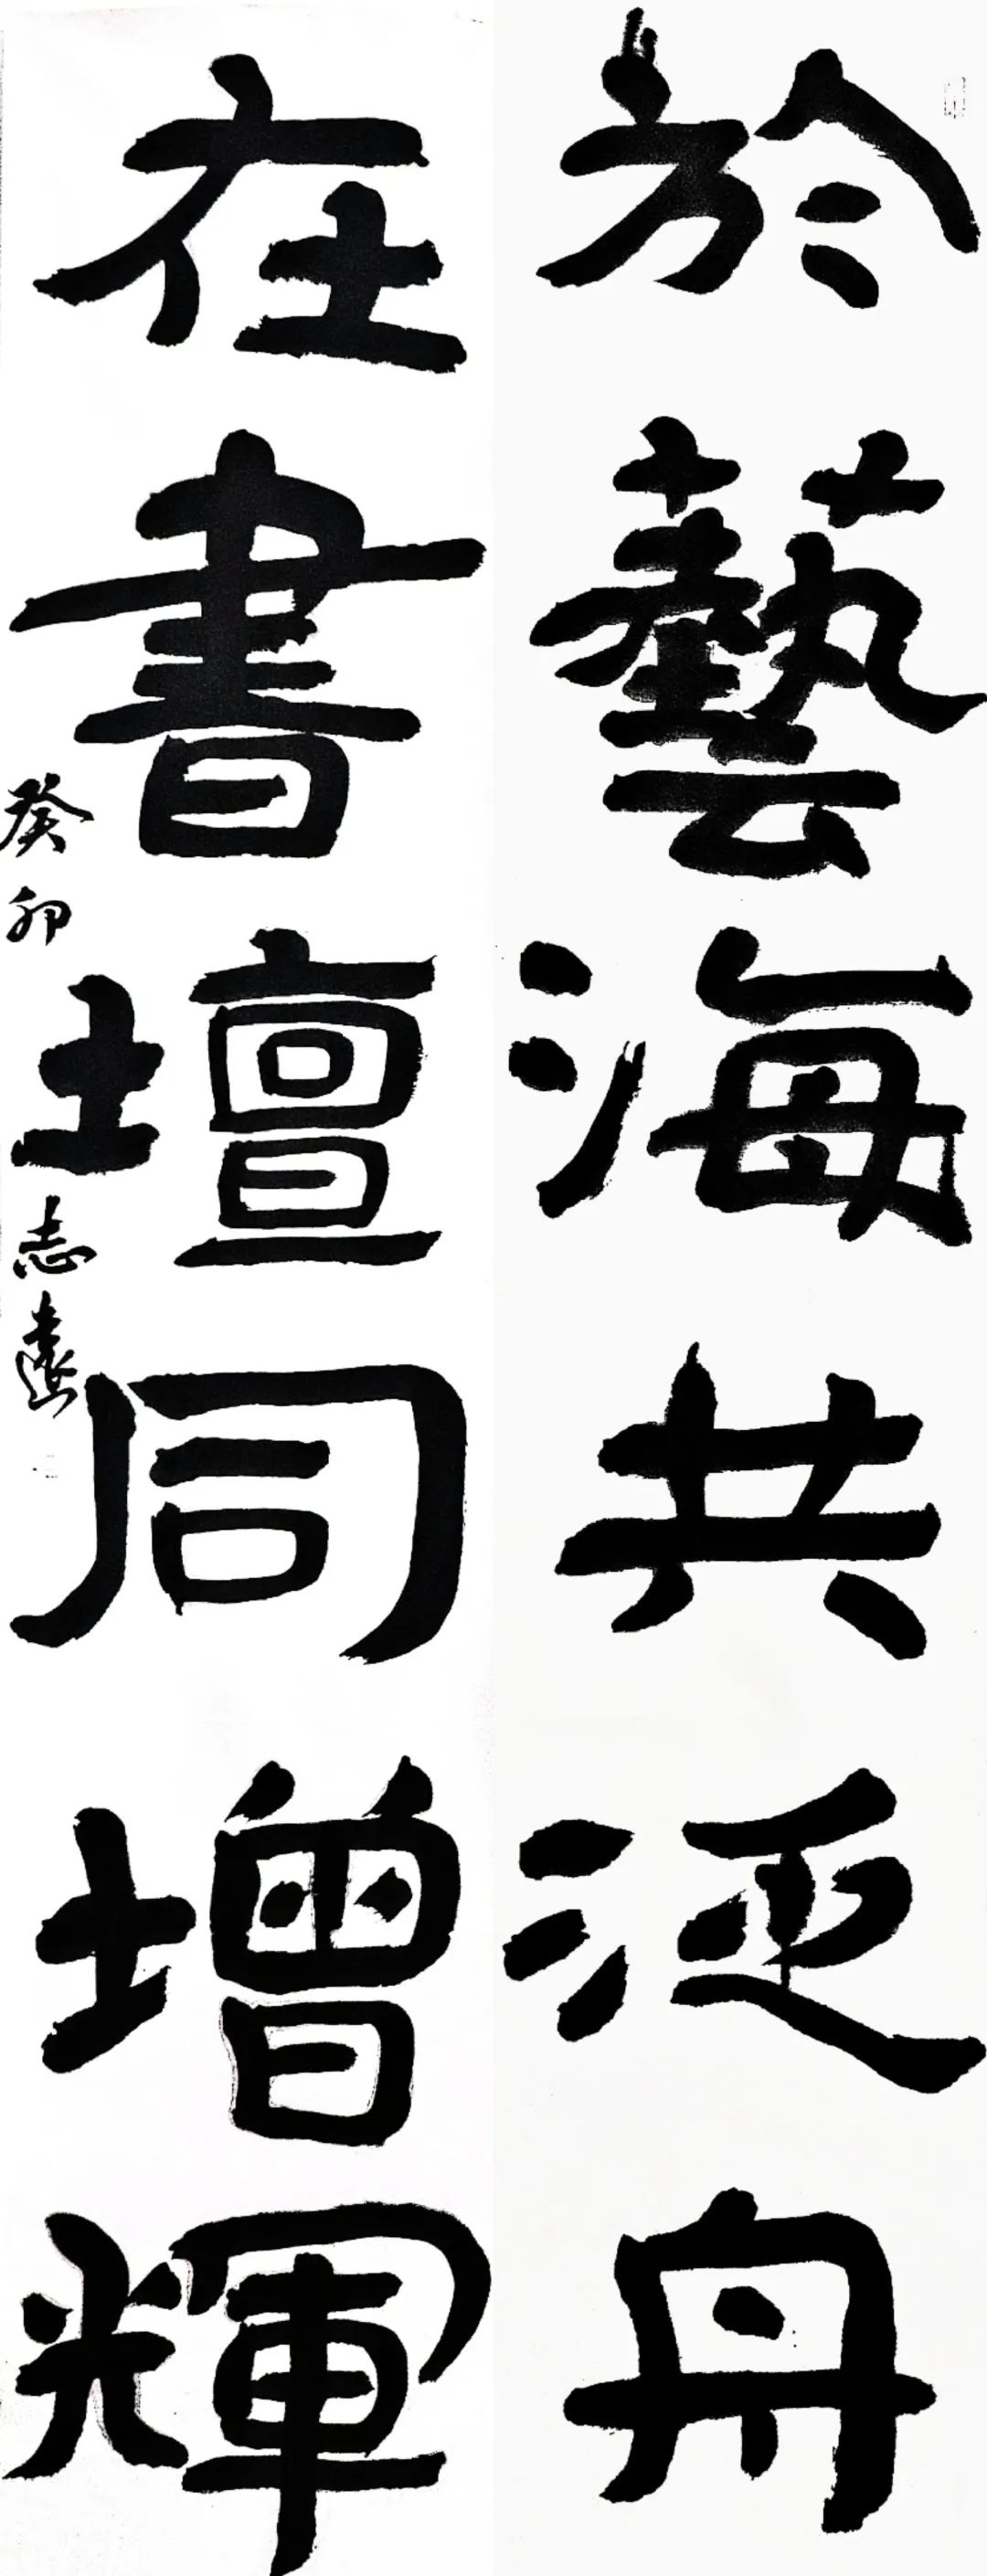 於藝海共泛舟
在書壇同增輝
癸卯
志遠